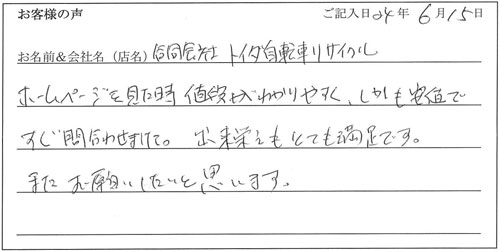 お客様の声 ご記入日24年 6月15日
お名前&会社名（店名）合同会社 トイダ自転車リサイクル
ホームページを見た時 値段も入わかりやすく、しかも安値で
すぐ問合わせまして。出来栄えもとても満足です。
また お願いしたいと思います。